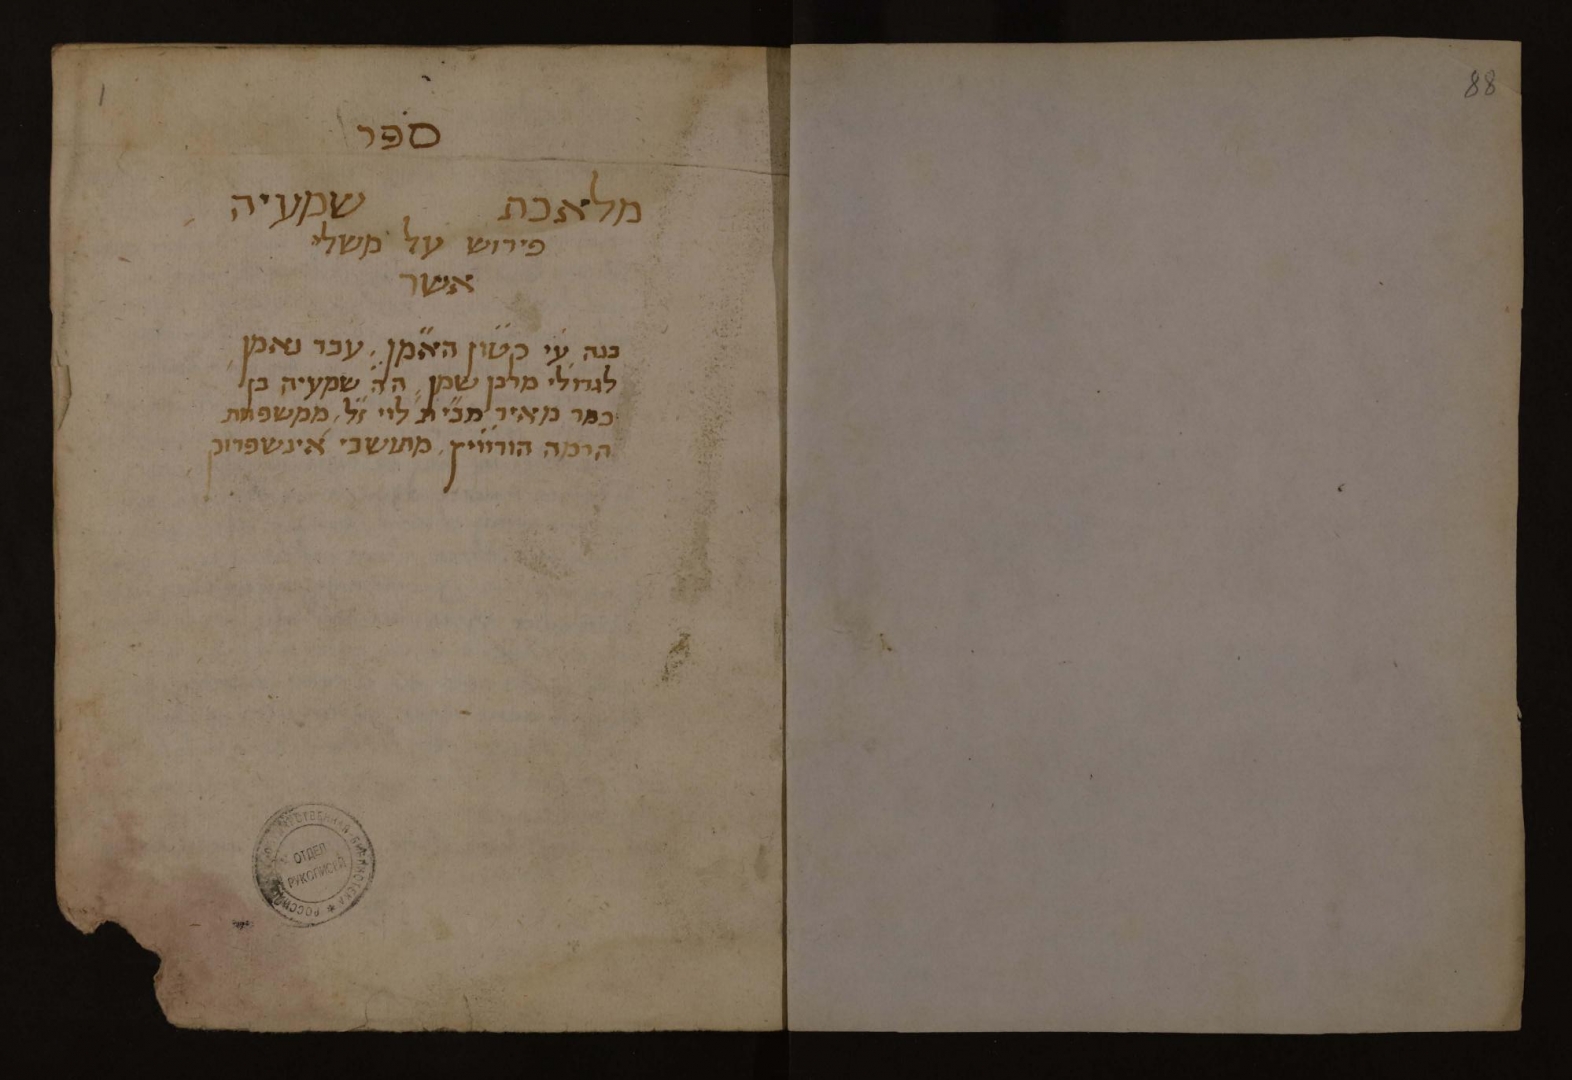 1
ספר
מלאכת שמעיה
פירוש על משלי
אשר
בנה ע״י קטון האמן, עבד נאמן
לגדולי מרבן שמן, ה״ה שמעיה בן
כמר מאיר מבית לוי ז״ל, ממשפחת
הרמה הורוויץ, מתושבי אינשפרוק
ОТДЕЛ
РУКОПИСЕЙ
88